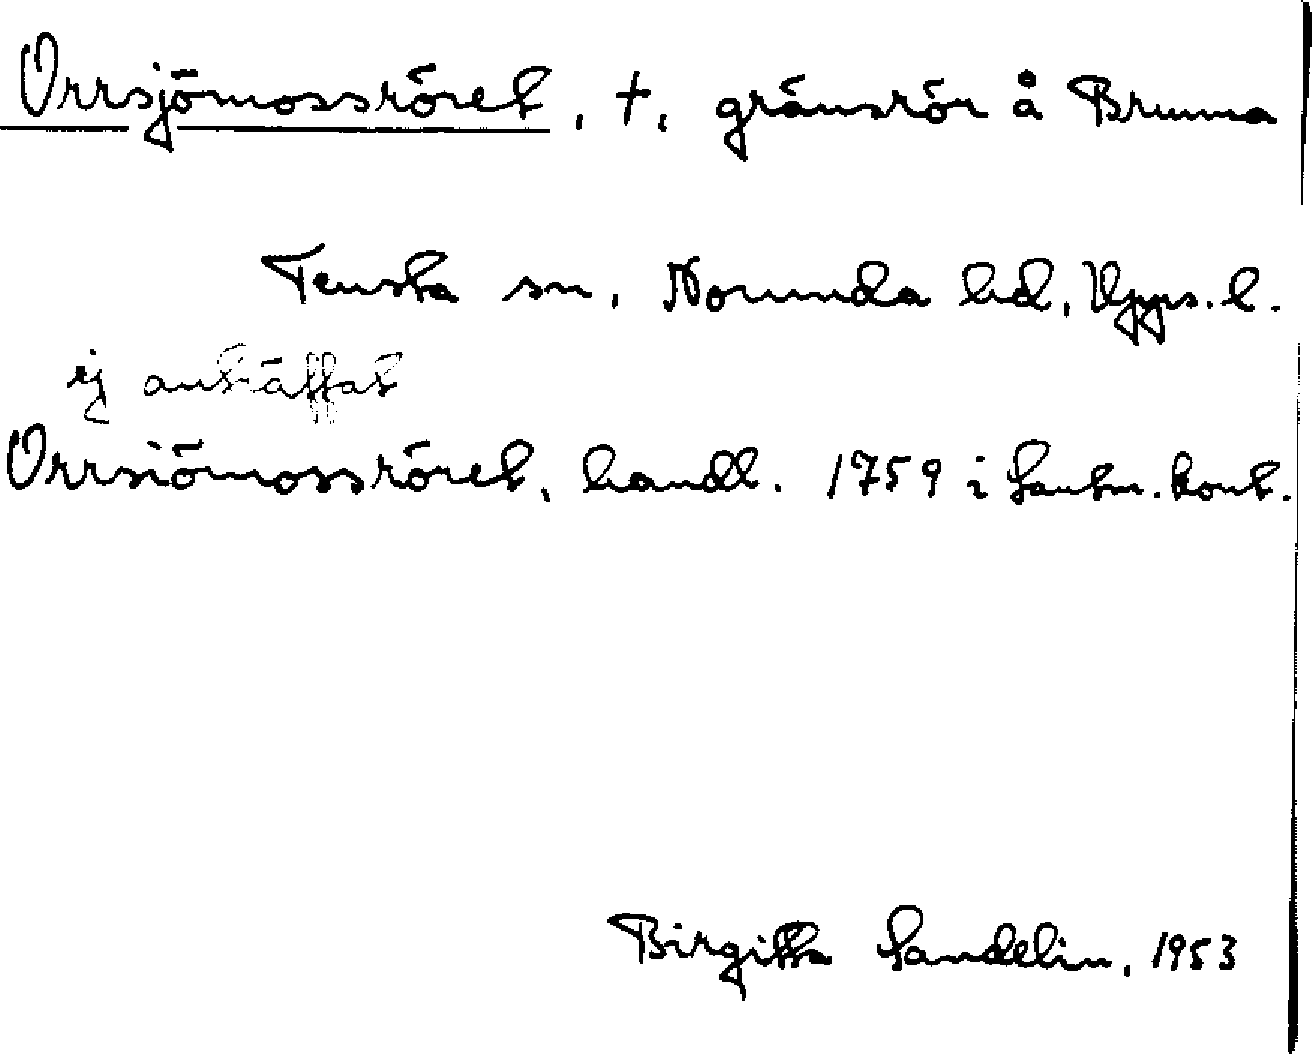 Orrsjömossröret, +, gränsrör å Brunna
Tensta sn, Norunda hd, Upps. l.
ej anträffat
Orrsiömossröret, handl. 1759 i Lantm. kont.
Birgitta Sandelin, 1953